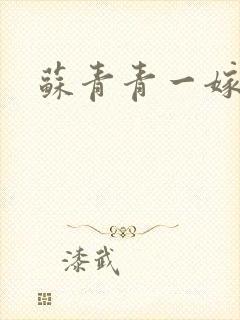 蘇青青一嫁
漆武